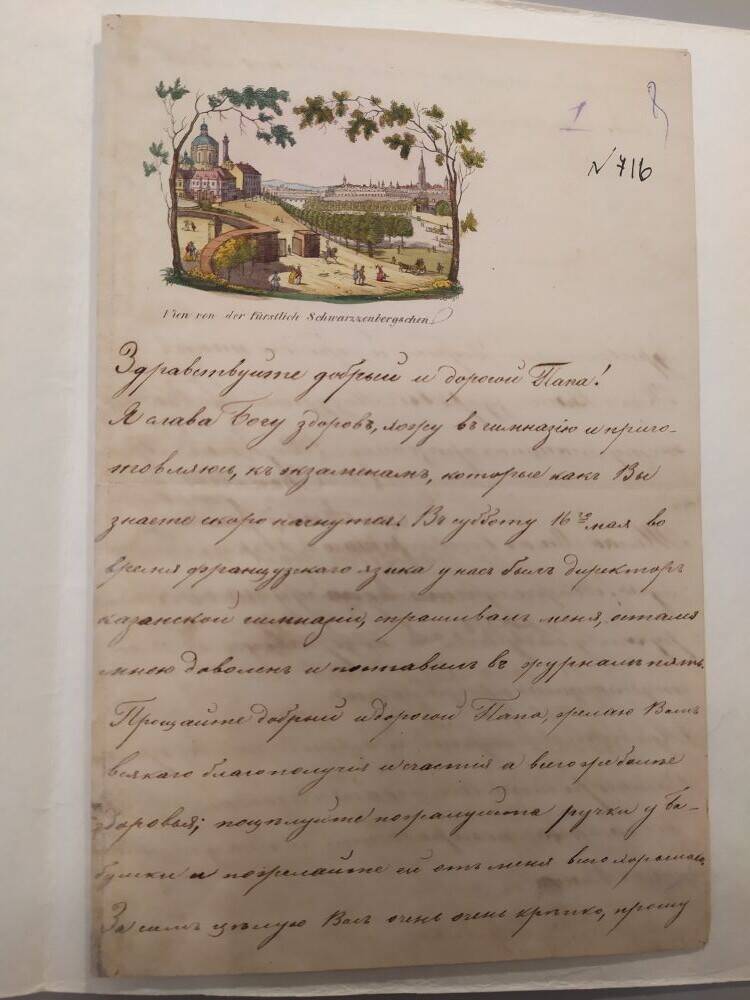 1
N 716
Wien von der fürstlich Schwarzzenbergschen
Здравствуйте добрый и дорогой Папа!
Я слава Богу здоровъ, хожу въ гимназію и приго-
товляюсь, къ экзаменамъ, которые какъ Вы
знаете скоро начнутся. Въ субботу 16го мая во
время французскаго языка у насъ былъ директоръ
казанской гимназіи, спрашивалъ меня, остался
мною доволенъ и поставилъ въ журналъ пять.
Прощайте добрый и дорогой Папа, желаю Вамъ
всякаго благополучія и счастія а всего же более
здоровья; поцѣлуйте пожалуйста ручки у ба-
бушки и пожелайте ей отъ меня всего хорошаго.
За симъ цѣлую Васъ очень очень крѣпко, прошу